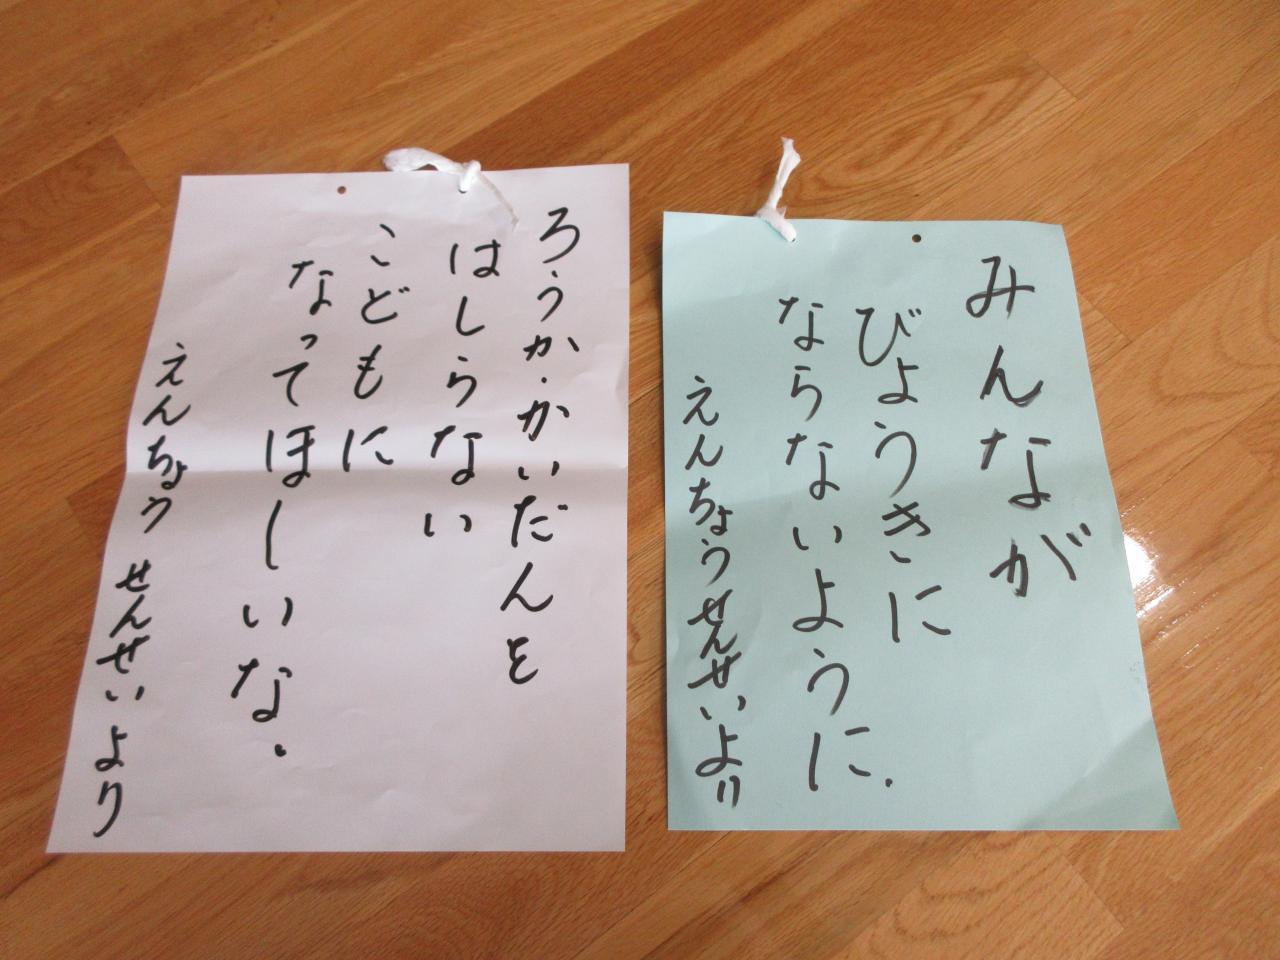 ろうか・かいだんを
はしらない
こどもに
なってほしいな.
えんちょう せんせいより
みんなが
びょうきに
ならないように.
えんちょうせんせいより